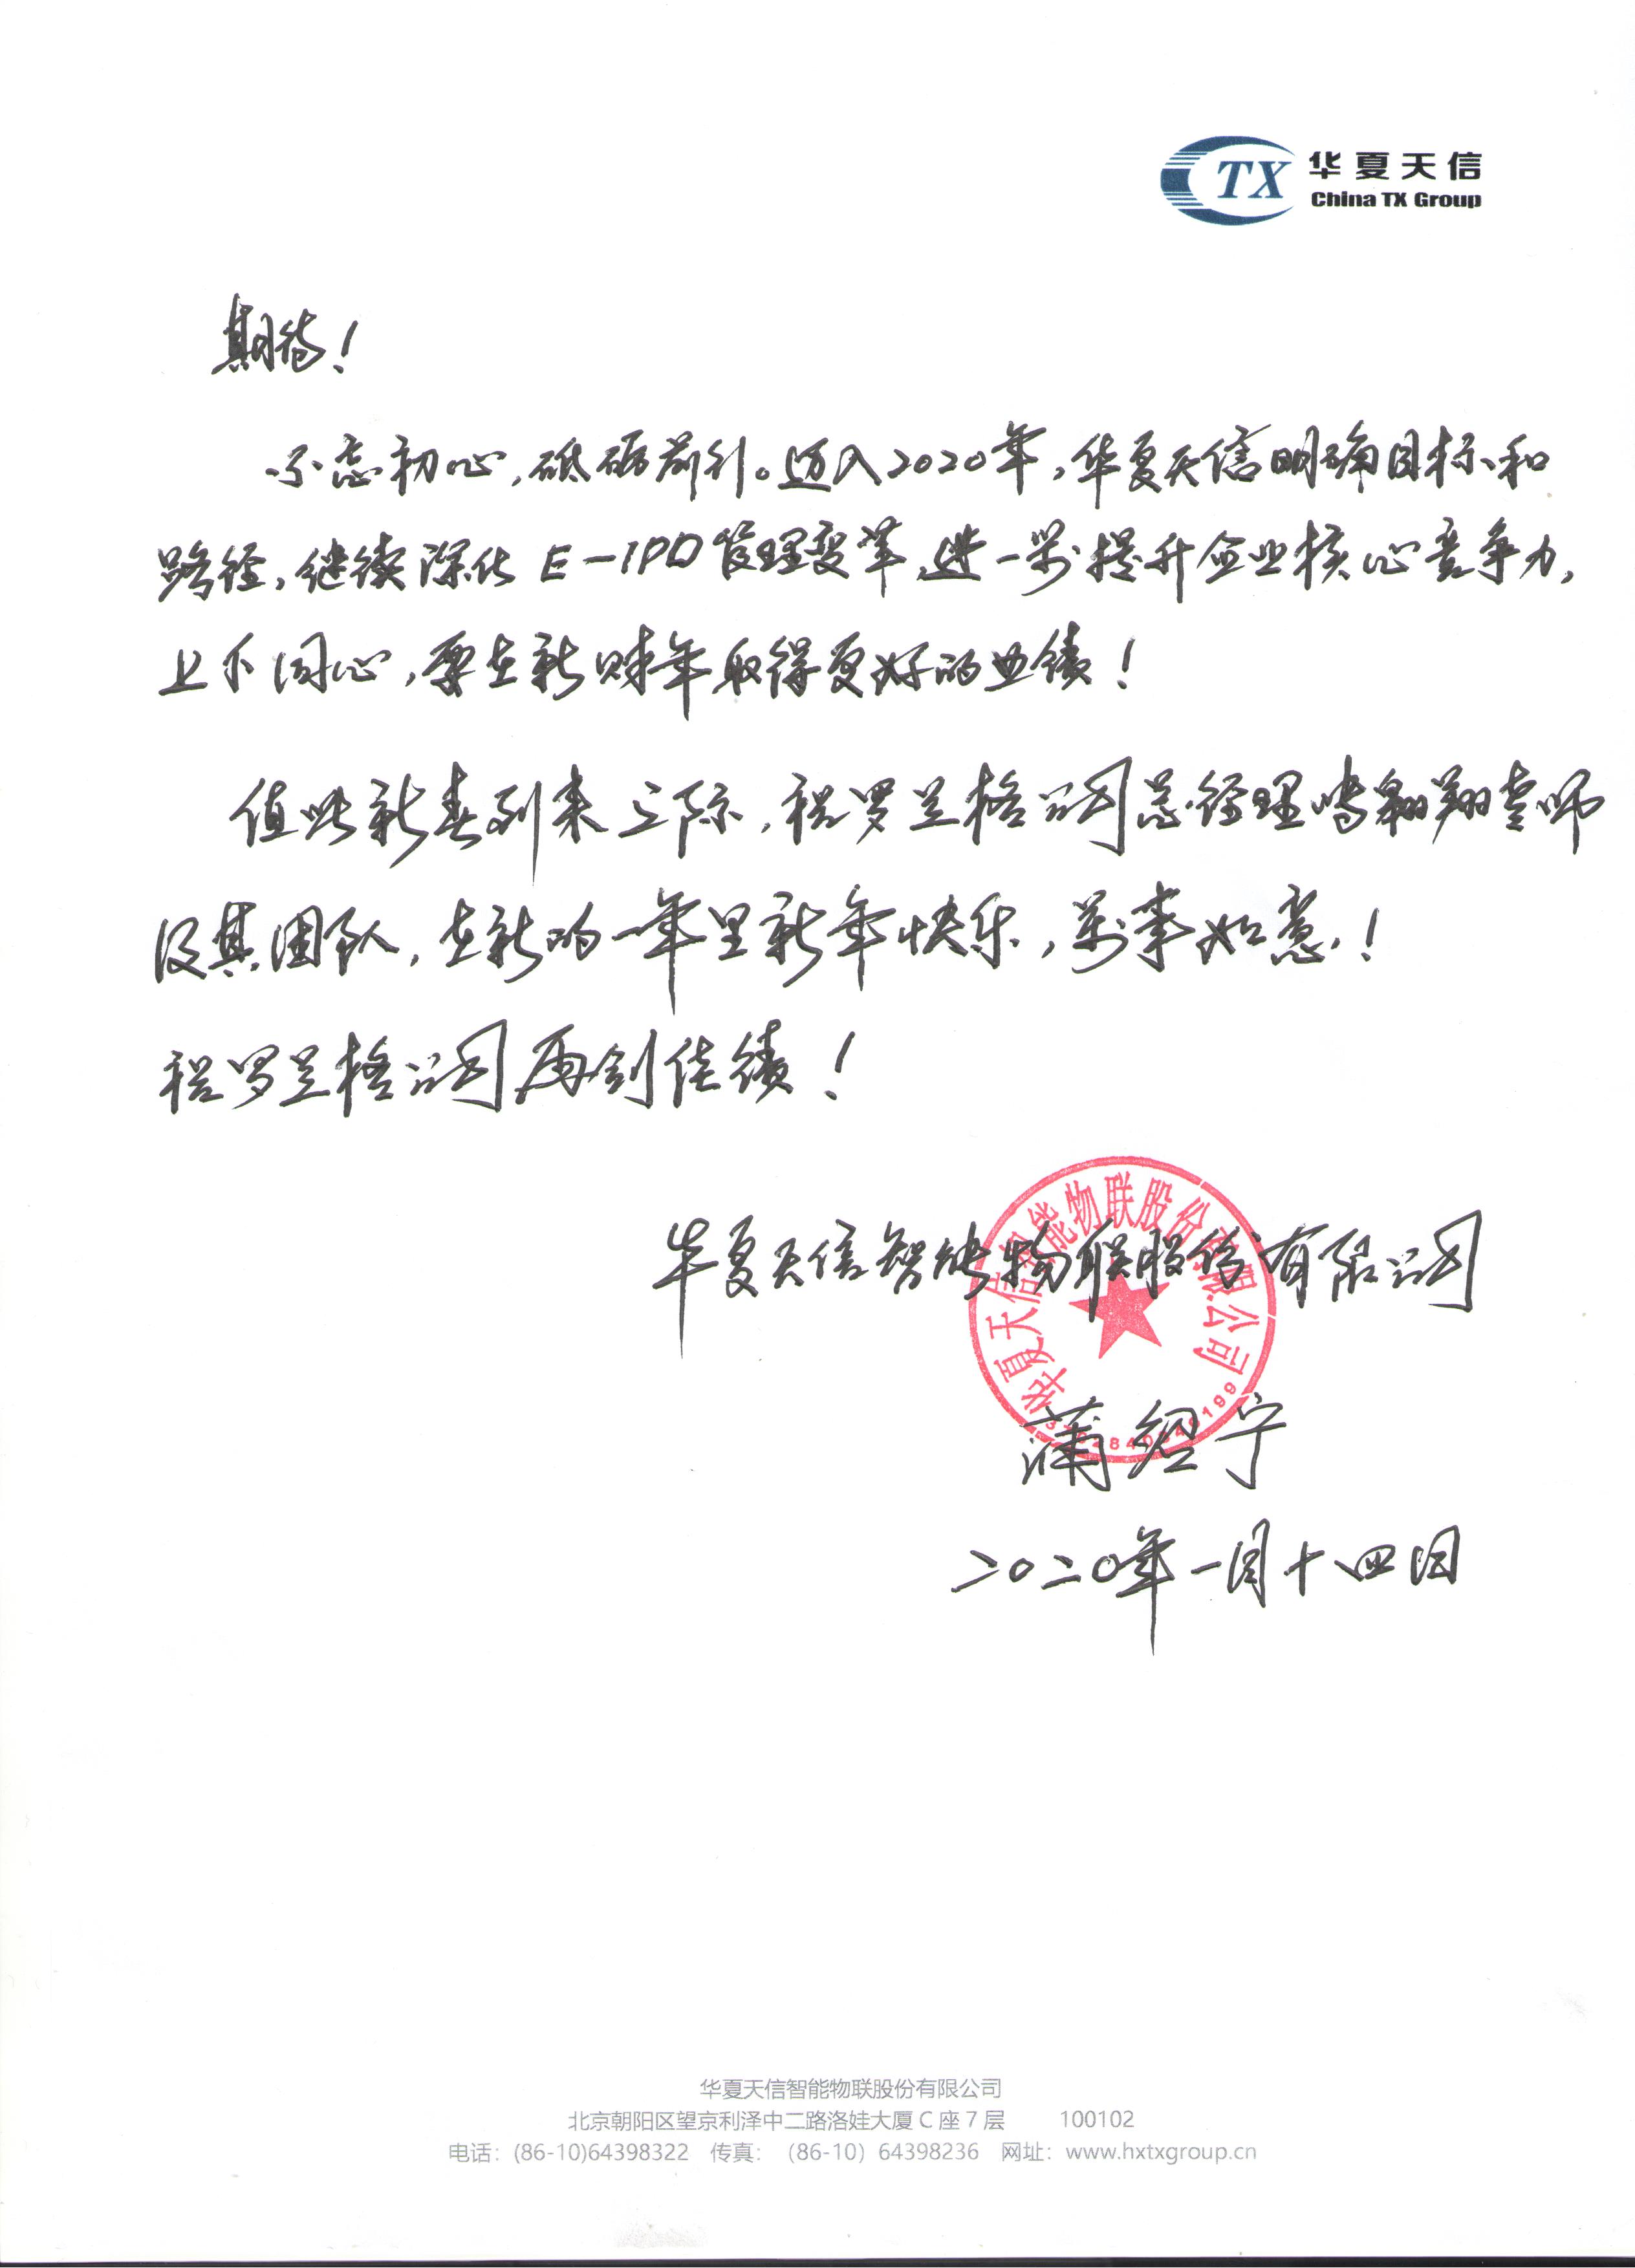 TX 华夏天信
China TX Group
期待!
不忘初心,砥砺前行。迈入2020年,华夏天信明确目标和
路径,继续深化E-IPD管理变革,进一步提升企业核心竞争力,
上下同心,要在新财年取得更好的业绩!
值此新春到来之际,祝罗兰格公司总经理 翱翔老师
及其团队,在新的一年里新年快乐,万事如意!
祝罗兰格公司再创佳绩!
华夏天信智能物联股份有限公司
华夏天信智能物联股份有限公司
蒲绍宁
二〇二〇年一月十四日
华夏天信智能物联股份有限公司
北京朝阳区望京利泽中二路洛娃大厦C座7层 100102
电话:(86-10)64398322 传真:(86-10)64398236 网址:www.hxtxgroup.cn